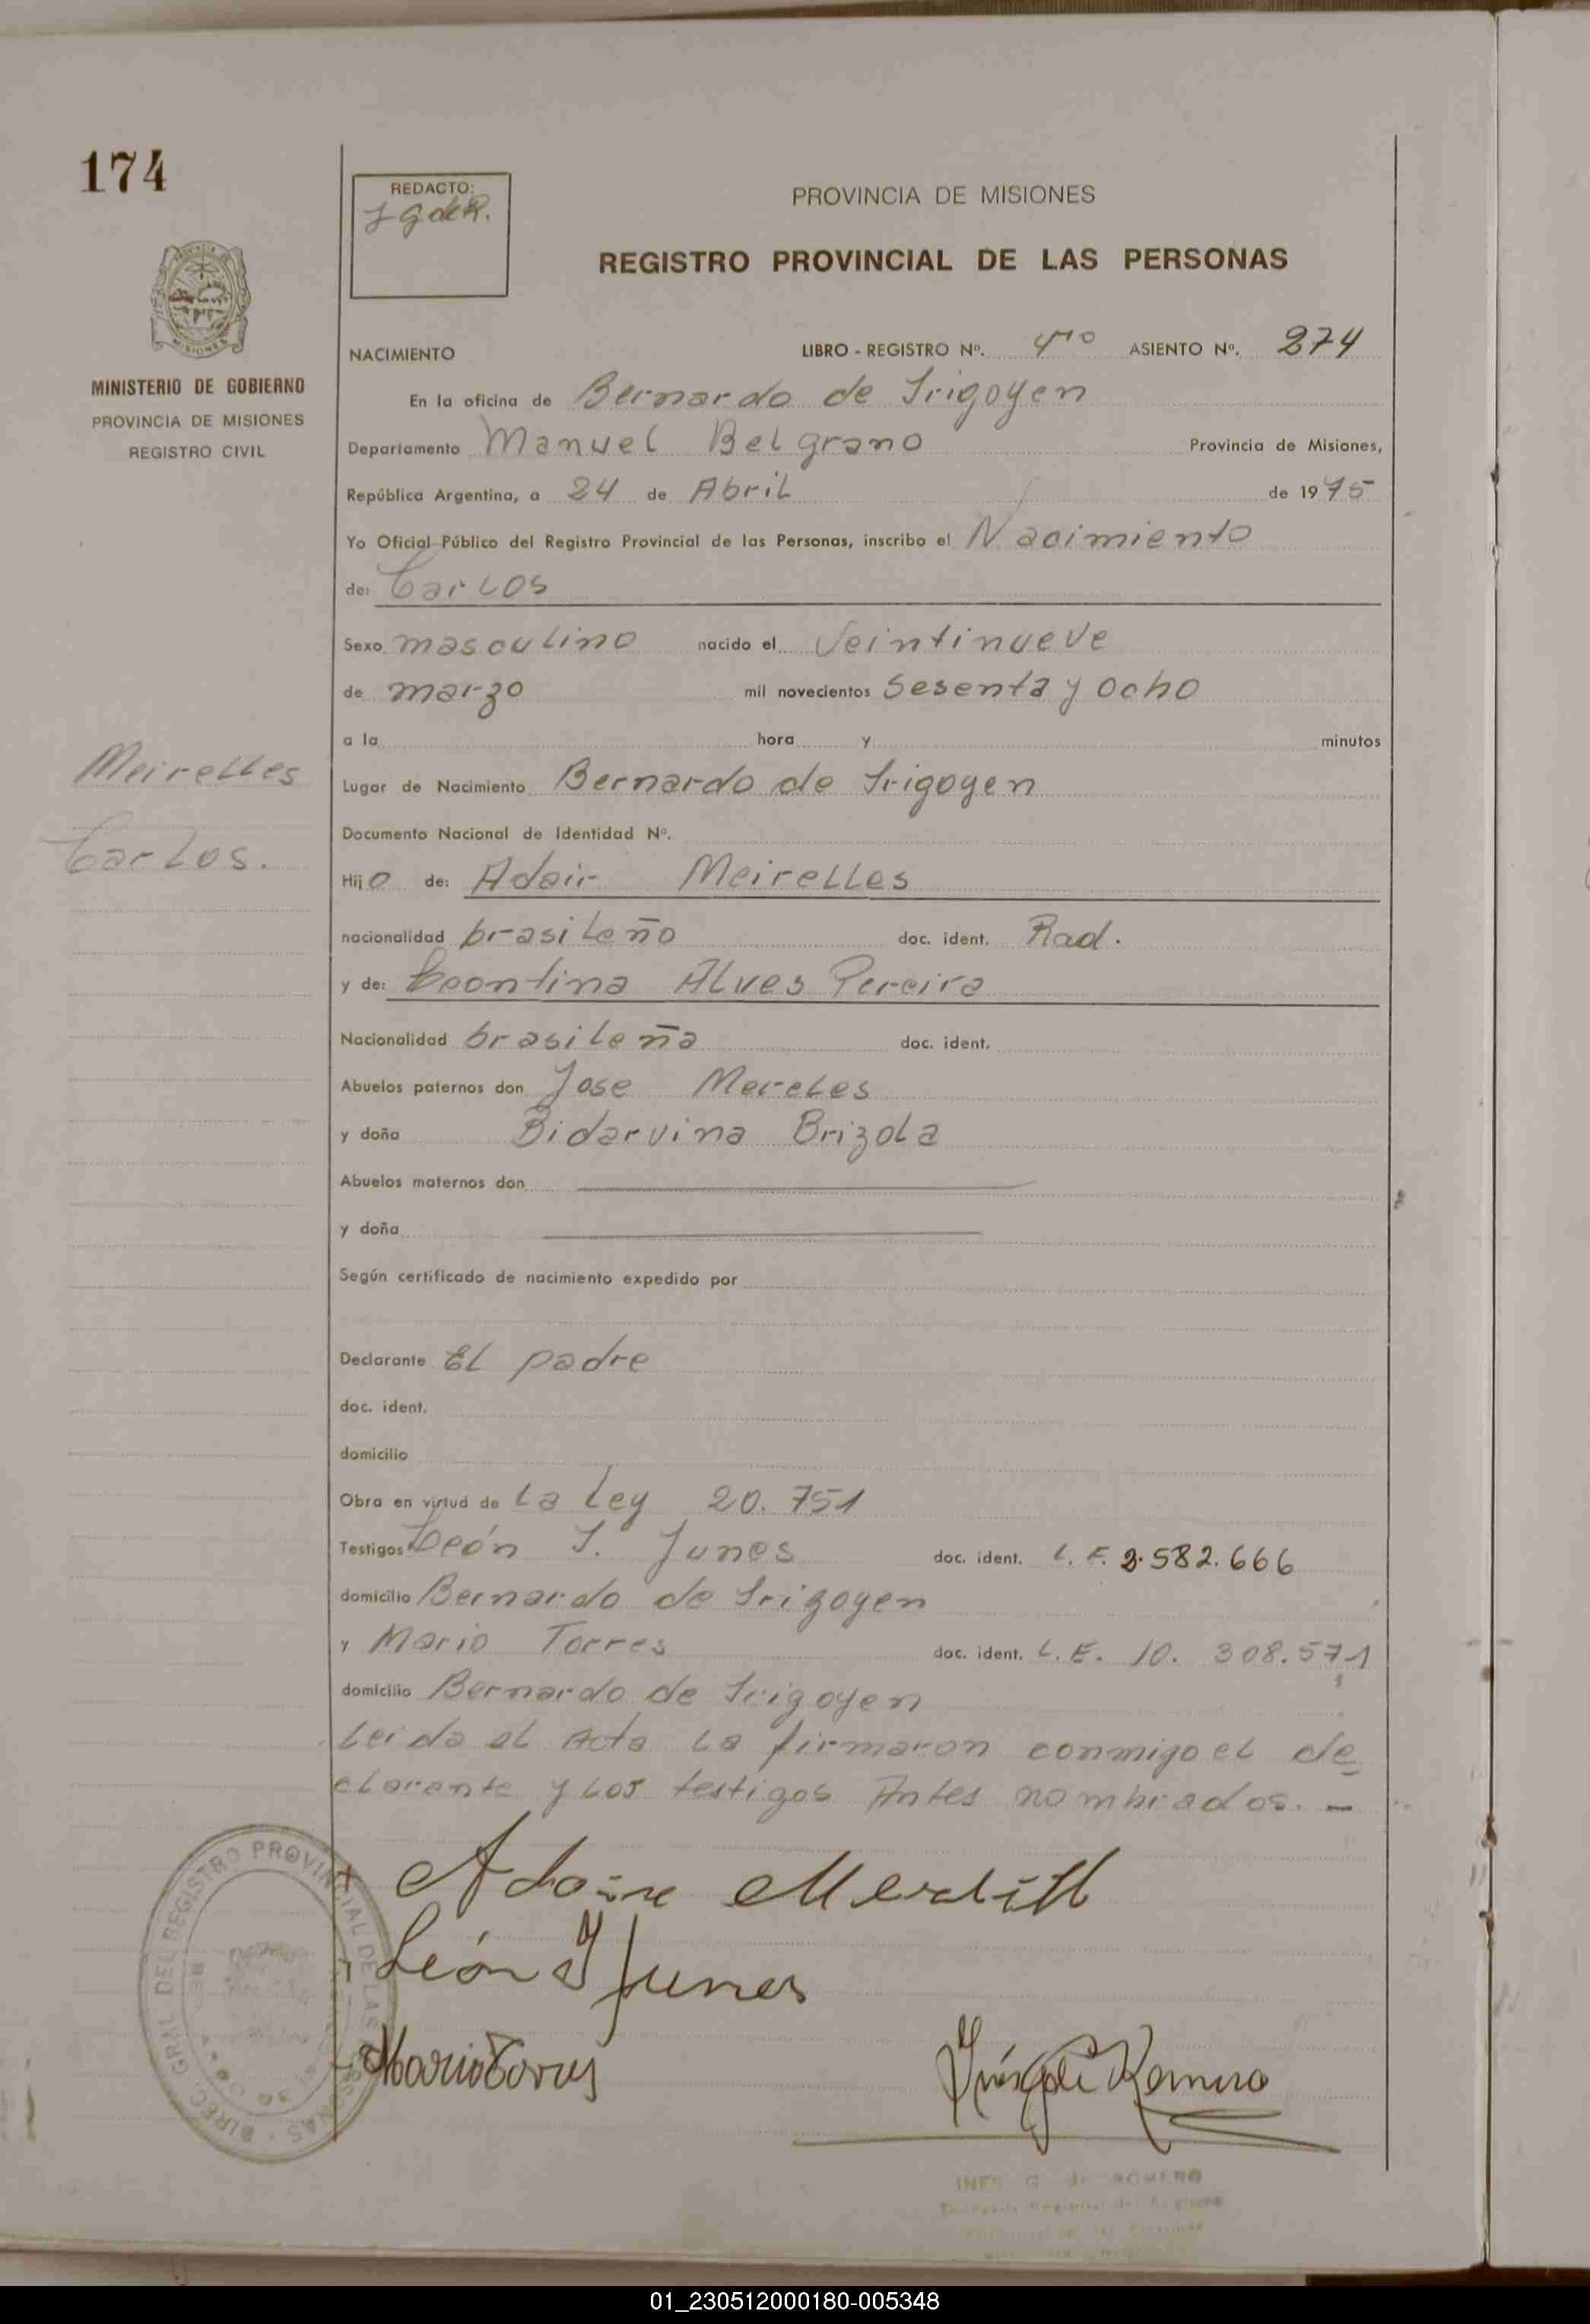 174
REDACTO:
J G de R.
PROVINCIA DE MISIONES
REGISTRO PROVINCIAL DE LAS PERSONAS
MISIONES
MINISTERIO DE GOBIERNO
PROVINCIA DE MISIONES
REGISTRO CIVIL
NACIMIENTO LIBRO - REGISTRO Nº. 4to ASIENTO Nº. 274
En la oficina de Bernardo de Irigoyen
Departamento Manuel Belgrano Provincia de Misiones,
República Argentina, a 24 de Abril de 1975
Yo Oficial Público del Registro Provincial de las Personas, inscribo el Nacimiento
de: Carlos
Sexo masculino nacido el Veintinueve
de marzo mil novecientos Sesenta y Ocho
a la hora y minutos
Meirelles
Carlos.
Lugar de Nacimiento Bernardo de Irigoyen
Documento Nacional de Identidad Nº.
Hijo de: Adair Meirelles
nacionalidad brasileño doc. ident. Rad.
y de: Leontina Alves Pereira
Nacionalidad brasileña doc. ident.
Abuelos paternos don Jose Mereles
y doña Bidarvina Brizola
Abuelos maternos don
y doña
Según certificado de nacimiento expedido por
Declarante El padre
doc. ident.
domicilio
Obra en virtud de La Ley 20.751
Testigos León I. Junes doc. ident. L. E. 2.582.666
domicilio Bernardo de Irigoyen
y Mario Torres doc. ident. L. E. 10. 308.571
domicilio Bernardo de Irigoyen
Leida el Acta La firmaron conmigo el de
clarante y Los testigos Antes nombrados. -
León I Junes
Mario Torres
Inés G de Romero
DIREC. GRAL. DEL REGISTRO PROVINCIAL DE LAS PERSONAS
INES G. de ROMERO
01_230512000180-005348